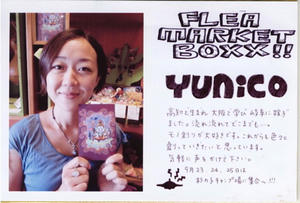 FLEA
MARKET
BOXX!!
YUNiCO
高知で生まれ 大阪で学び 岐阜に嫁ぎ
ました。流れ流れてどこまでも…。
モノ創りが大好きです。これからも色々と
創っていきたいと思っています。
気軽に声をかけて下さい。
9月23、24、25日は
キャンプ場に集合〜!!!